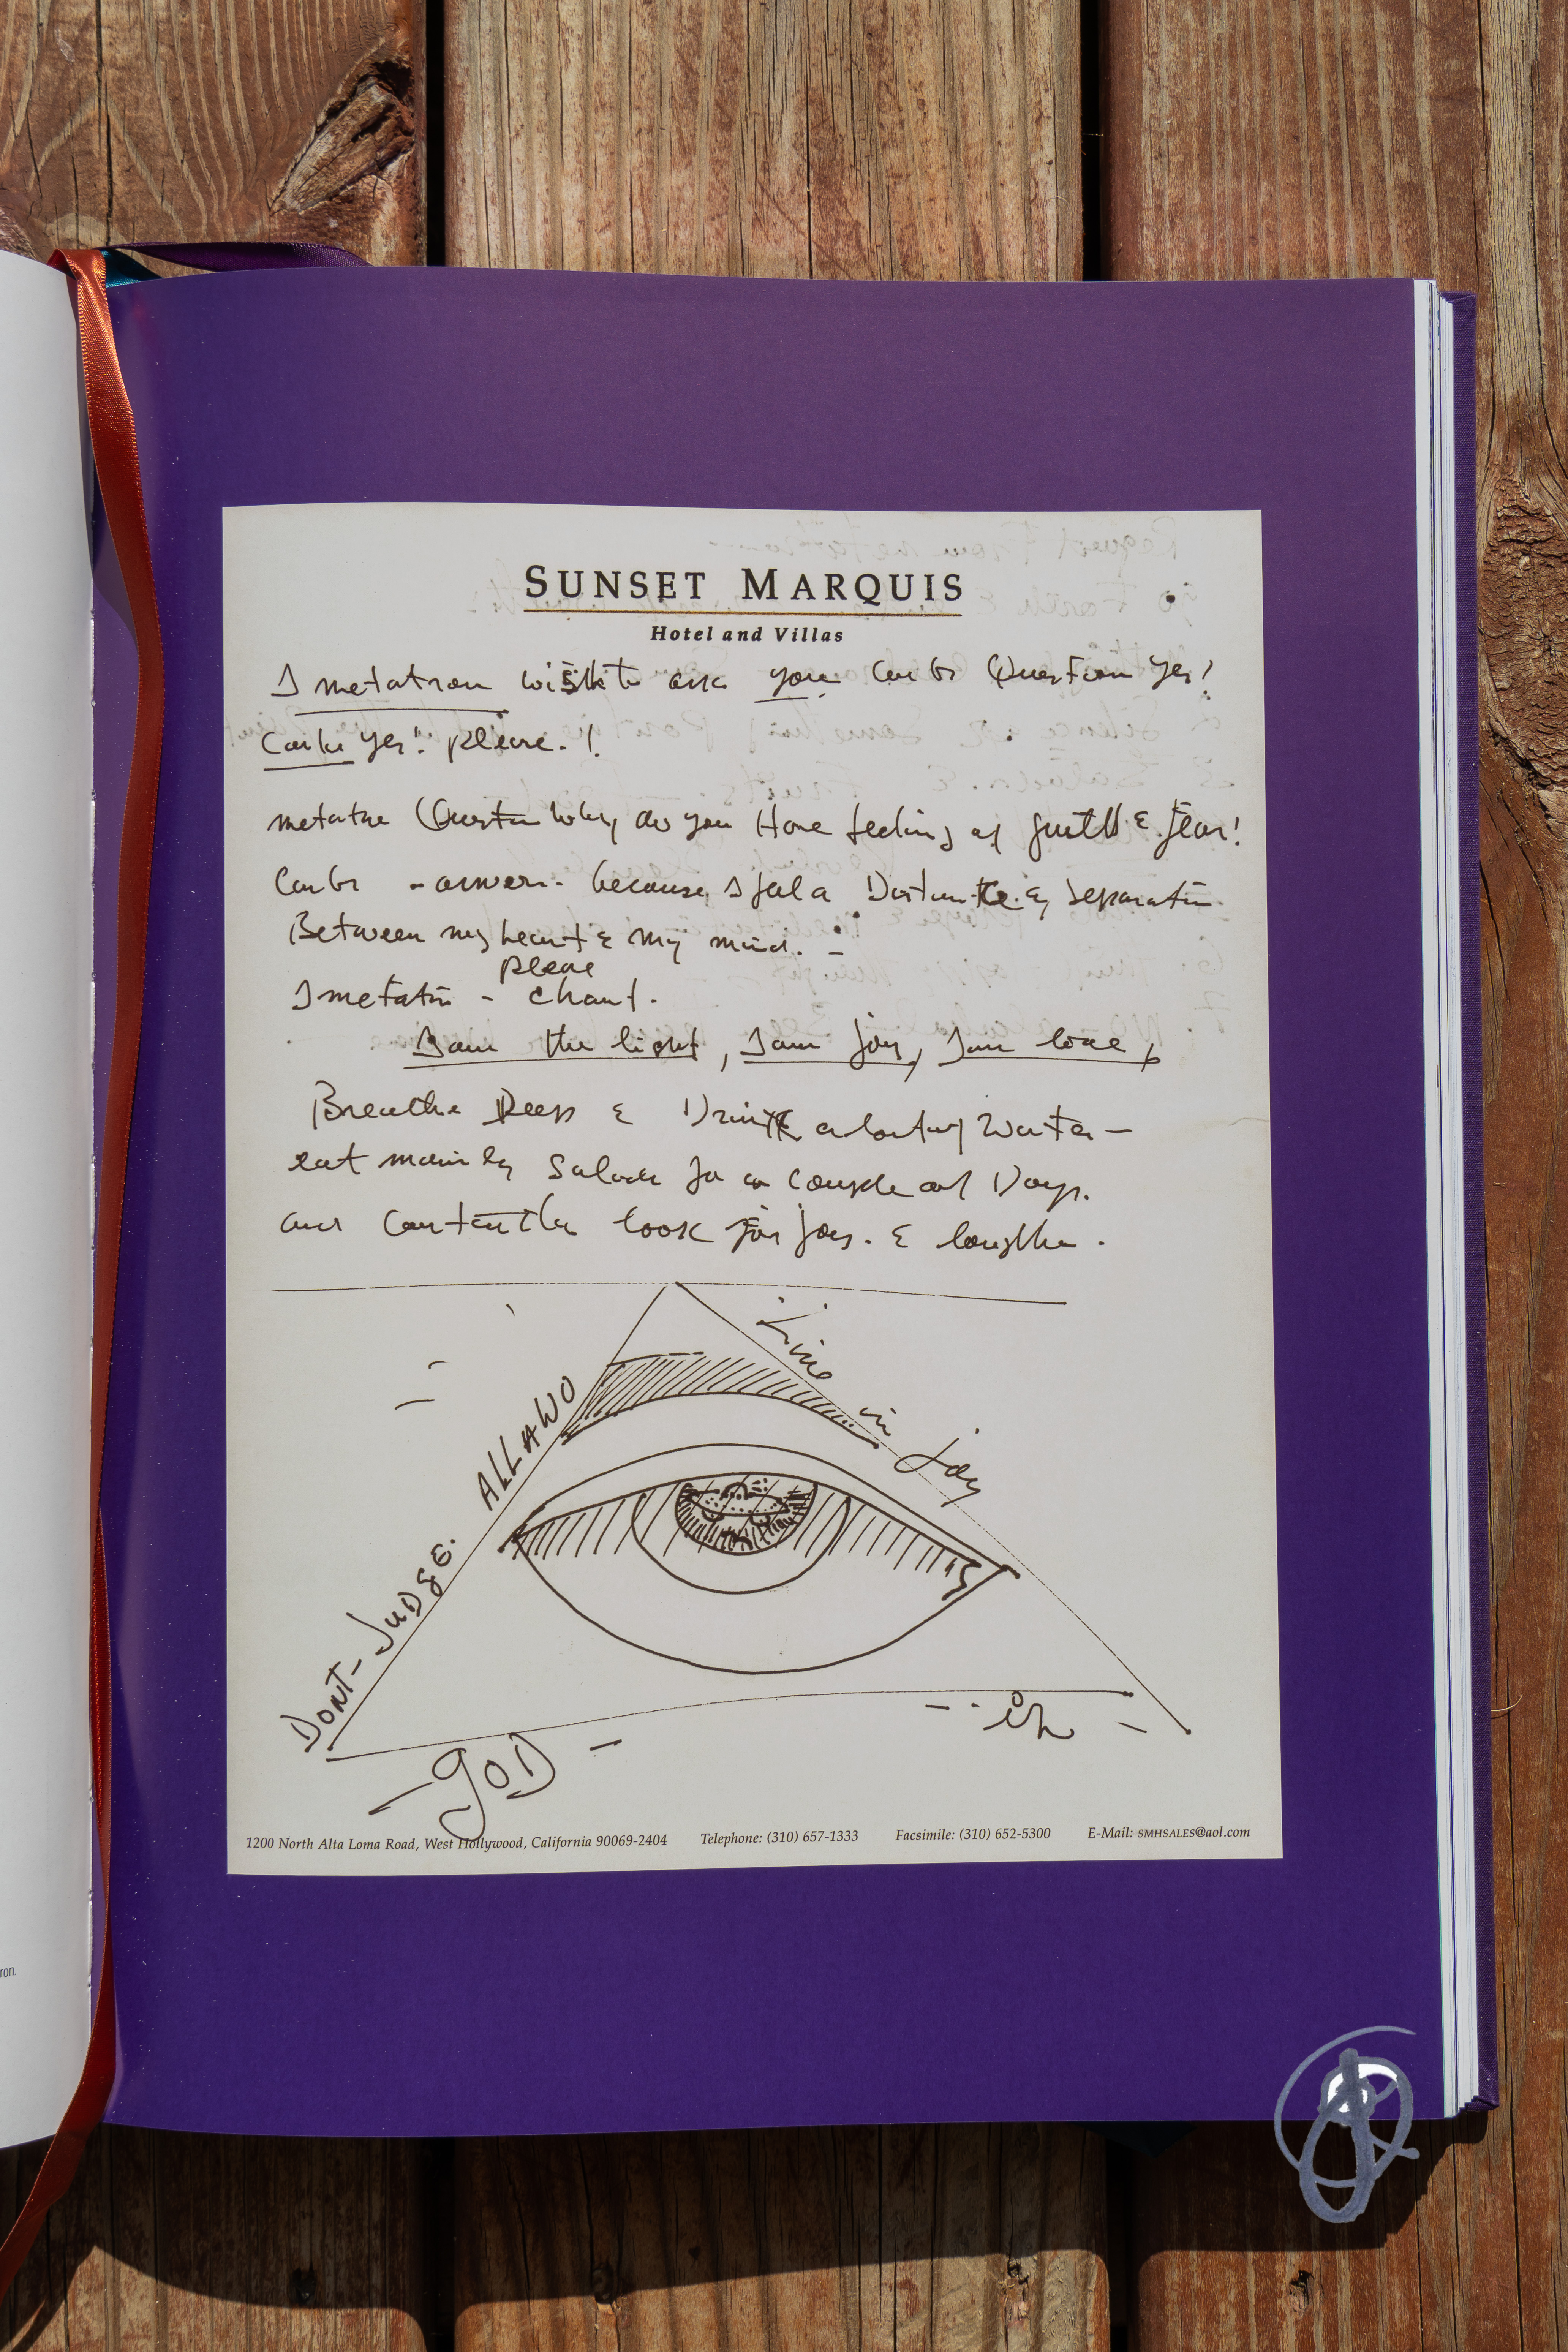 SUNSET MARQUIS
Hotel and Villas
I metatron wish to ask you Carlos Question yes!
Carlos yes! please. !
metatron Question Why do you Have feeling of guilt & fear!
Carlos - answer - because I feel a Distance & separation
Between my heart & my mind.
please
I metatron - chant.
I am the light, I am joy, I am love,
Breathe Deep & Drink a lot of Water -
eat mainly Salads for a couple of Days.
and constantly look for joy. & laughter.
DONT - JUDGE. ALLAWO
Live in joy
- GOD -
1200 North Alta Loma Road, West Hollywood, California 90069-2404 Telephone: (310) 657-1333 Facsimile: (310) 652-5300 E-Mail: SMHSALES@aol.com
ron.